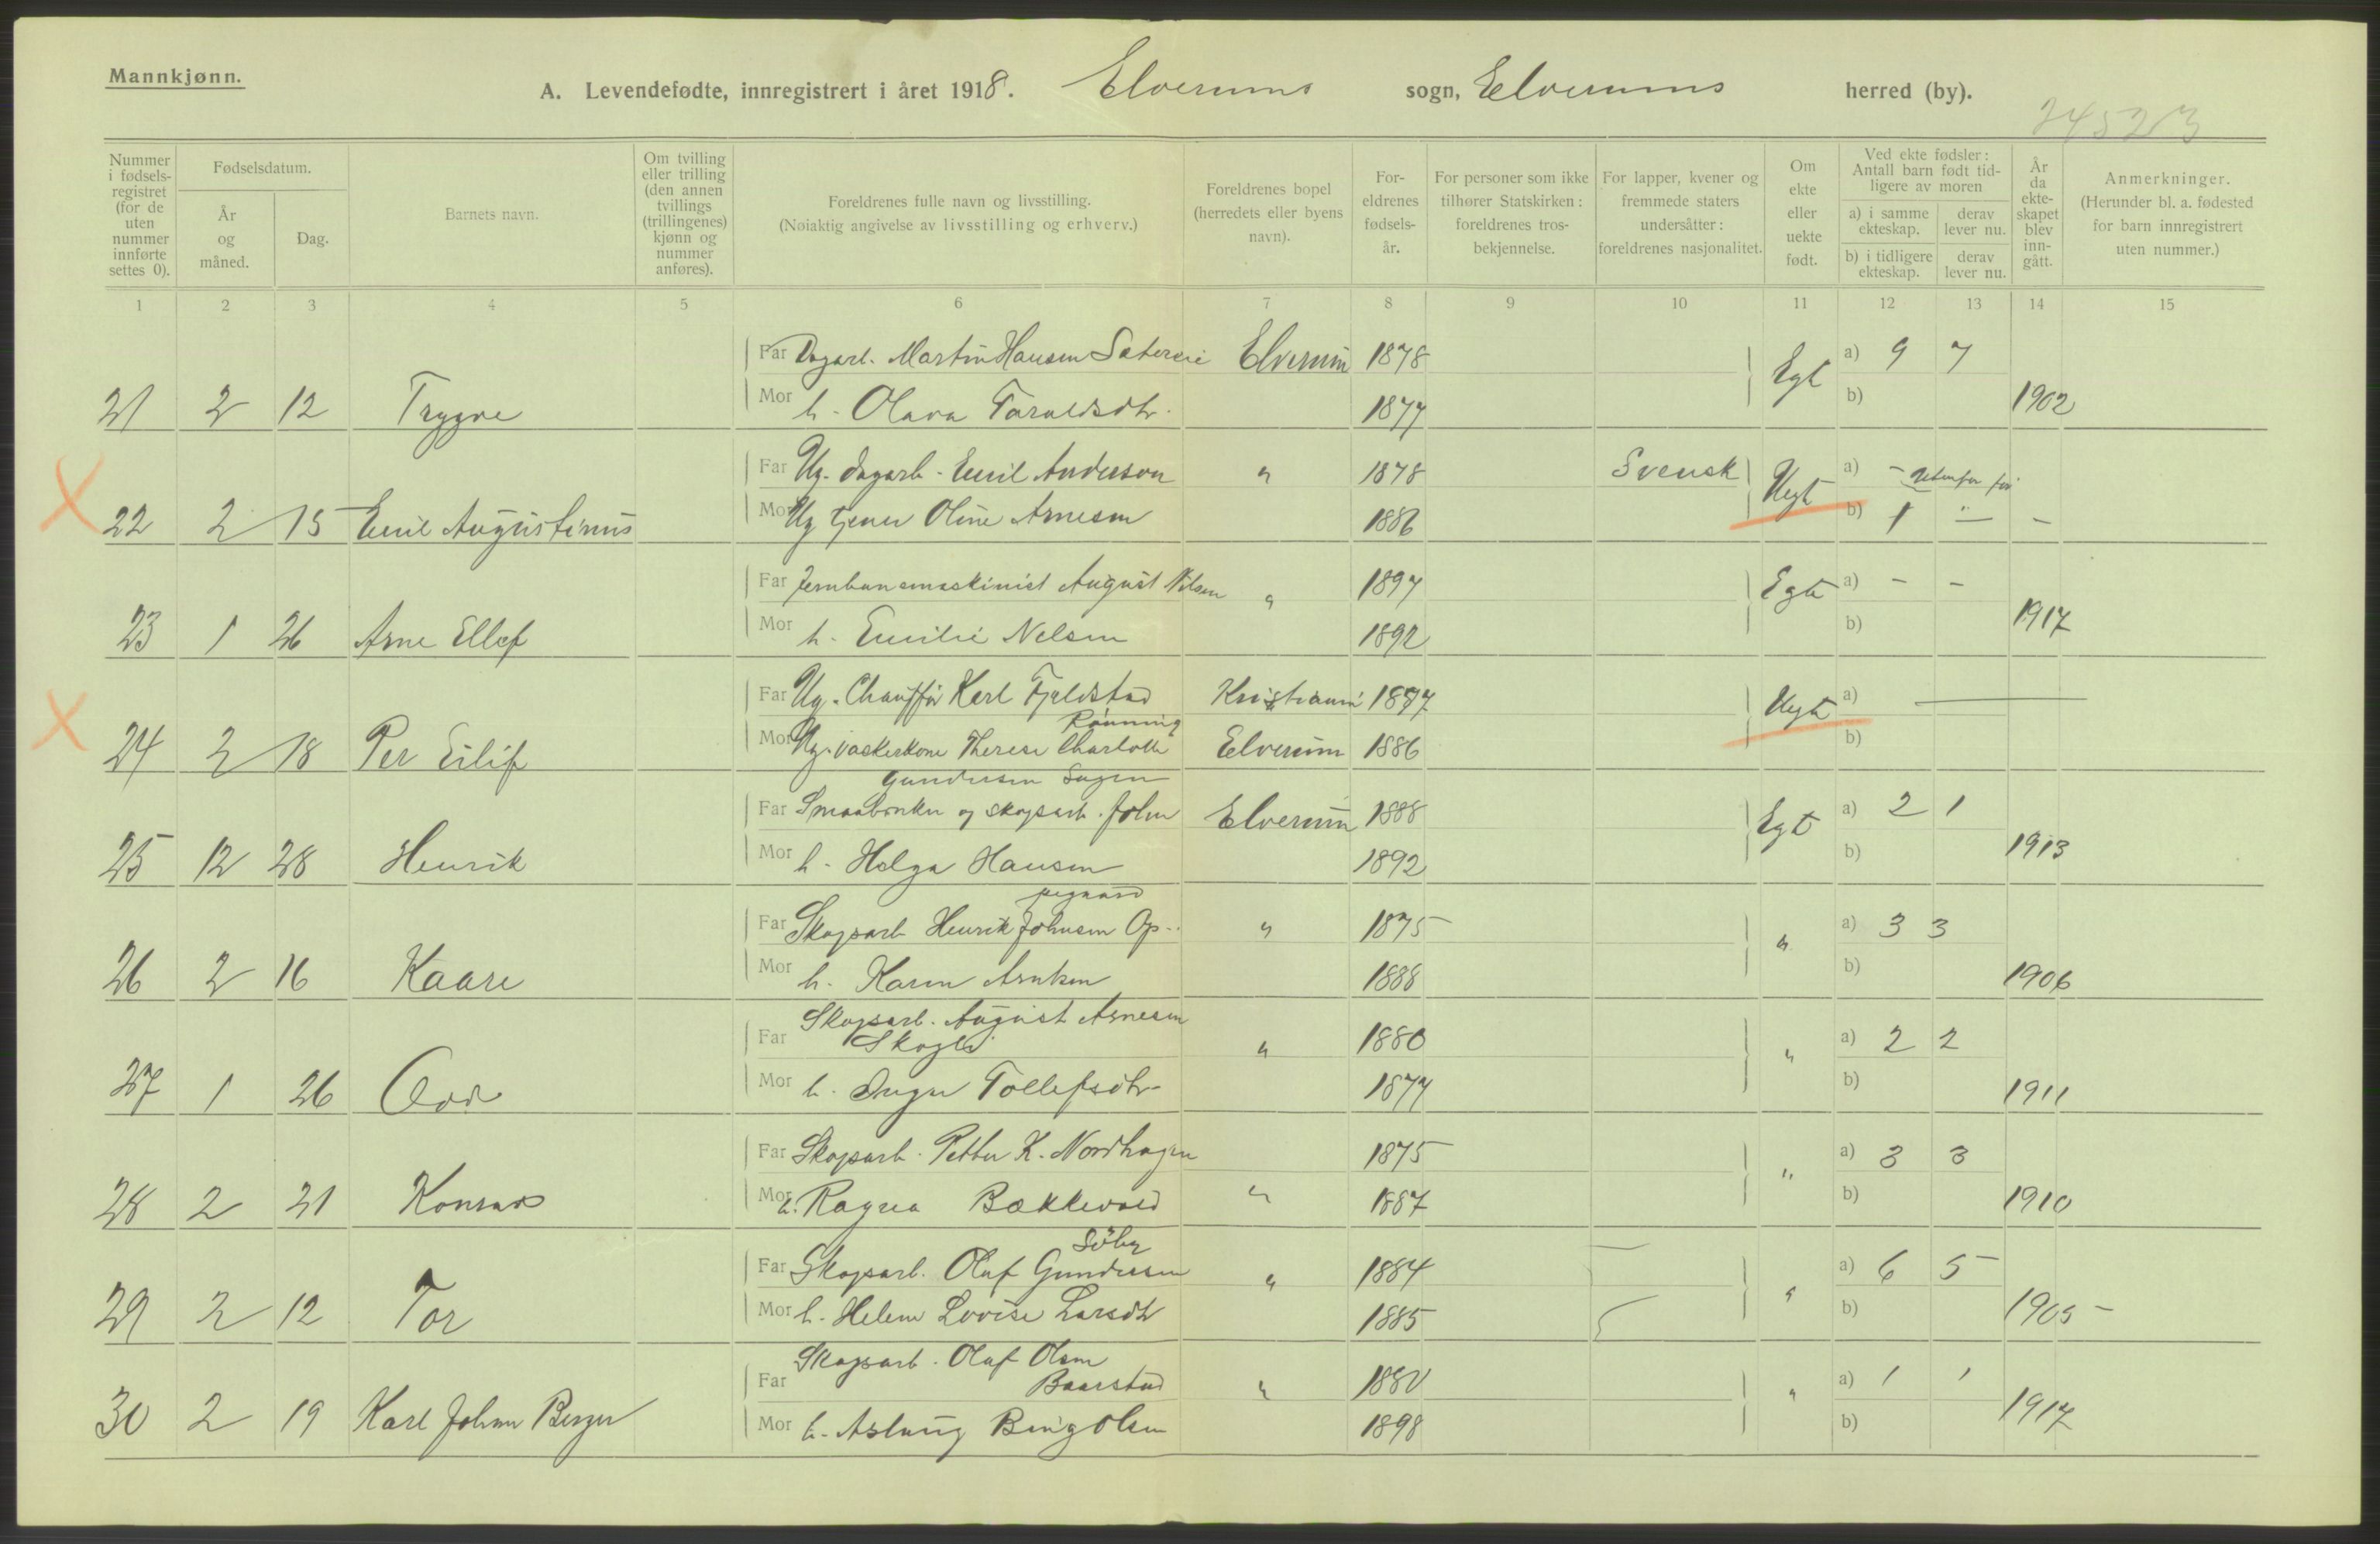 Mannkjønn.
A. Levendefødte, innregistrert i året 1918. Elverums sogn, Elverums herred (by).
24523
Nummer i fødselsregistret (for de uten nummer innførte settes 0).
Fødselsdatum.
År og måned.
Dag.
Barnets navn.
Om tvilling eller trilling (den annen tvillings (trillingenes) kjønn og nummer anføres).
Foreldrenes fulle navn og livsstilling.
(Nøiaktig angivelse av livsstilling og erhverv.)
Foreldrenes bopel (herredets eller byens navn).
For-eldrenes fødsels-år.
For personer som ikke tilhører Statskirken: foreldrenes tros-bekjennelse.
For lapper, kvener og fremmede staters undersåtter: foreldrenes nasjonalitet.
Om ekte eller uekte født.
Ved ekte fødsler: Antall barn født tid-ligere av moren
a) i samme ekteskap.
derav lever nu.
b) i tidligere ekteskap.
derav lever nu.
År da ekte-skapet blev inn-gått.
Anmerkninger.
(Herunder bl. a. fødested for barn innregistrert uten nummer.)
1 2 3 4 5 6 7 8 9 10 11 12 13 14 15
Far Dagarb. Martin Hansen Elverum 1878 Egt a) 9 7
21 2 12 Trygve Mor h. Olava Taraldsdtr. 1877 b) 1902
Far Ug. dagarb. Emil Anderson " 1878 Svensk Uegt a) -
22 2 15 Emil Augustinus Mor Ug tjener Oline Arnesen 1886 b) 1 - -
Far Jernbanemaskinist August Nilsen " 1897 Egte a) - -
23 1 26 Arne Ellef Mor h. Emilie Nelsen 1892 b) 1917
Far Ug. Chauffør Karl Fjeldstad Kristiania 1887 Uegte a) -
Rønning
24 2 18 Per Eilif Mor Ug. vaskerkone Therese Charlotte Elverum 1886 b)
Gundersen Sagen
Far Smaabruker og skogsarb. John Elverum 1888 Egte a) 2 1
25 12 28 Henrik Mor h. Helga Hansen 1892 b) 1913
pegaard
Far Skogsarb Henrik Johnsen Op- " 1875 " a) 3 3
26 2 16 Kaare Mor h. Karen Arntsen 1888 b) 1906
Skogsarb. August Arnesen
Far Skogli " 1880 " a) 2 2
27 1 26 Odd Mor h. Inga Tollefsdtr. 1877 b) 1911
Far Skogsarb. Petter K. Nordhagen 1875 " a) 3 3
28 2 21 Konrad Mor h. Ragna Bækkevold " 1887 b) 1910
Søby
Far Skogsarb. Olaf Gundersen " 1884 " a) 6 5
29 2 12 Tor Mor h. Helene Lovise Larsdtr 1885 b) 1905 -
Skogsarb. Olaf Olsen
Far Baarstad " 1880 " a) 1 1
30 2 19 Karl Johan Berger Mor h. Aslaug Berg Olsen 1898 b) 1917